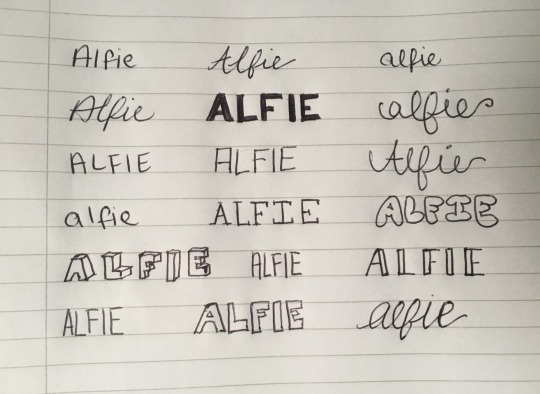 Alfie Alfie alfie
Alfie ALFIE alfie
ALFIE ALFIE Alfie
alfie ALFIE ALFIE
ALFIE ALFIE ALFIE
ALFIE ALFIE alfie